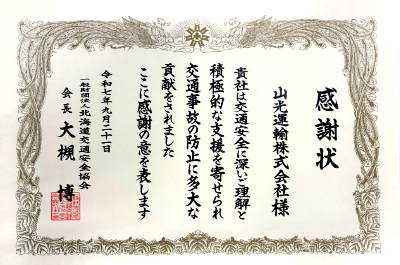 感謝状
山光運輸株式会社様
貴社は交通安全に深いご理解と
積極的な支援を寄せられ
交通事故の防止に多大な
貢献をされました
ここに感謝の意を表します
令和七年九月二十一日
一般財団法人北海道交通安全協会
会長 大槻 博